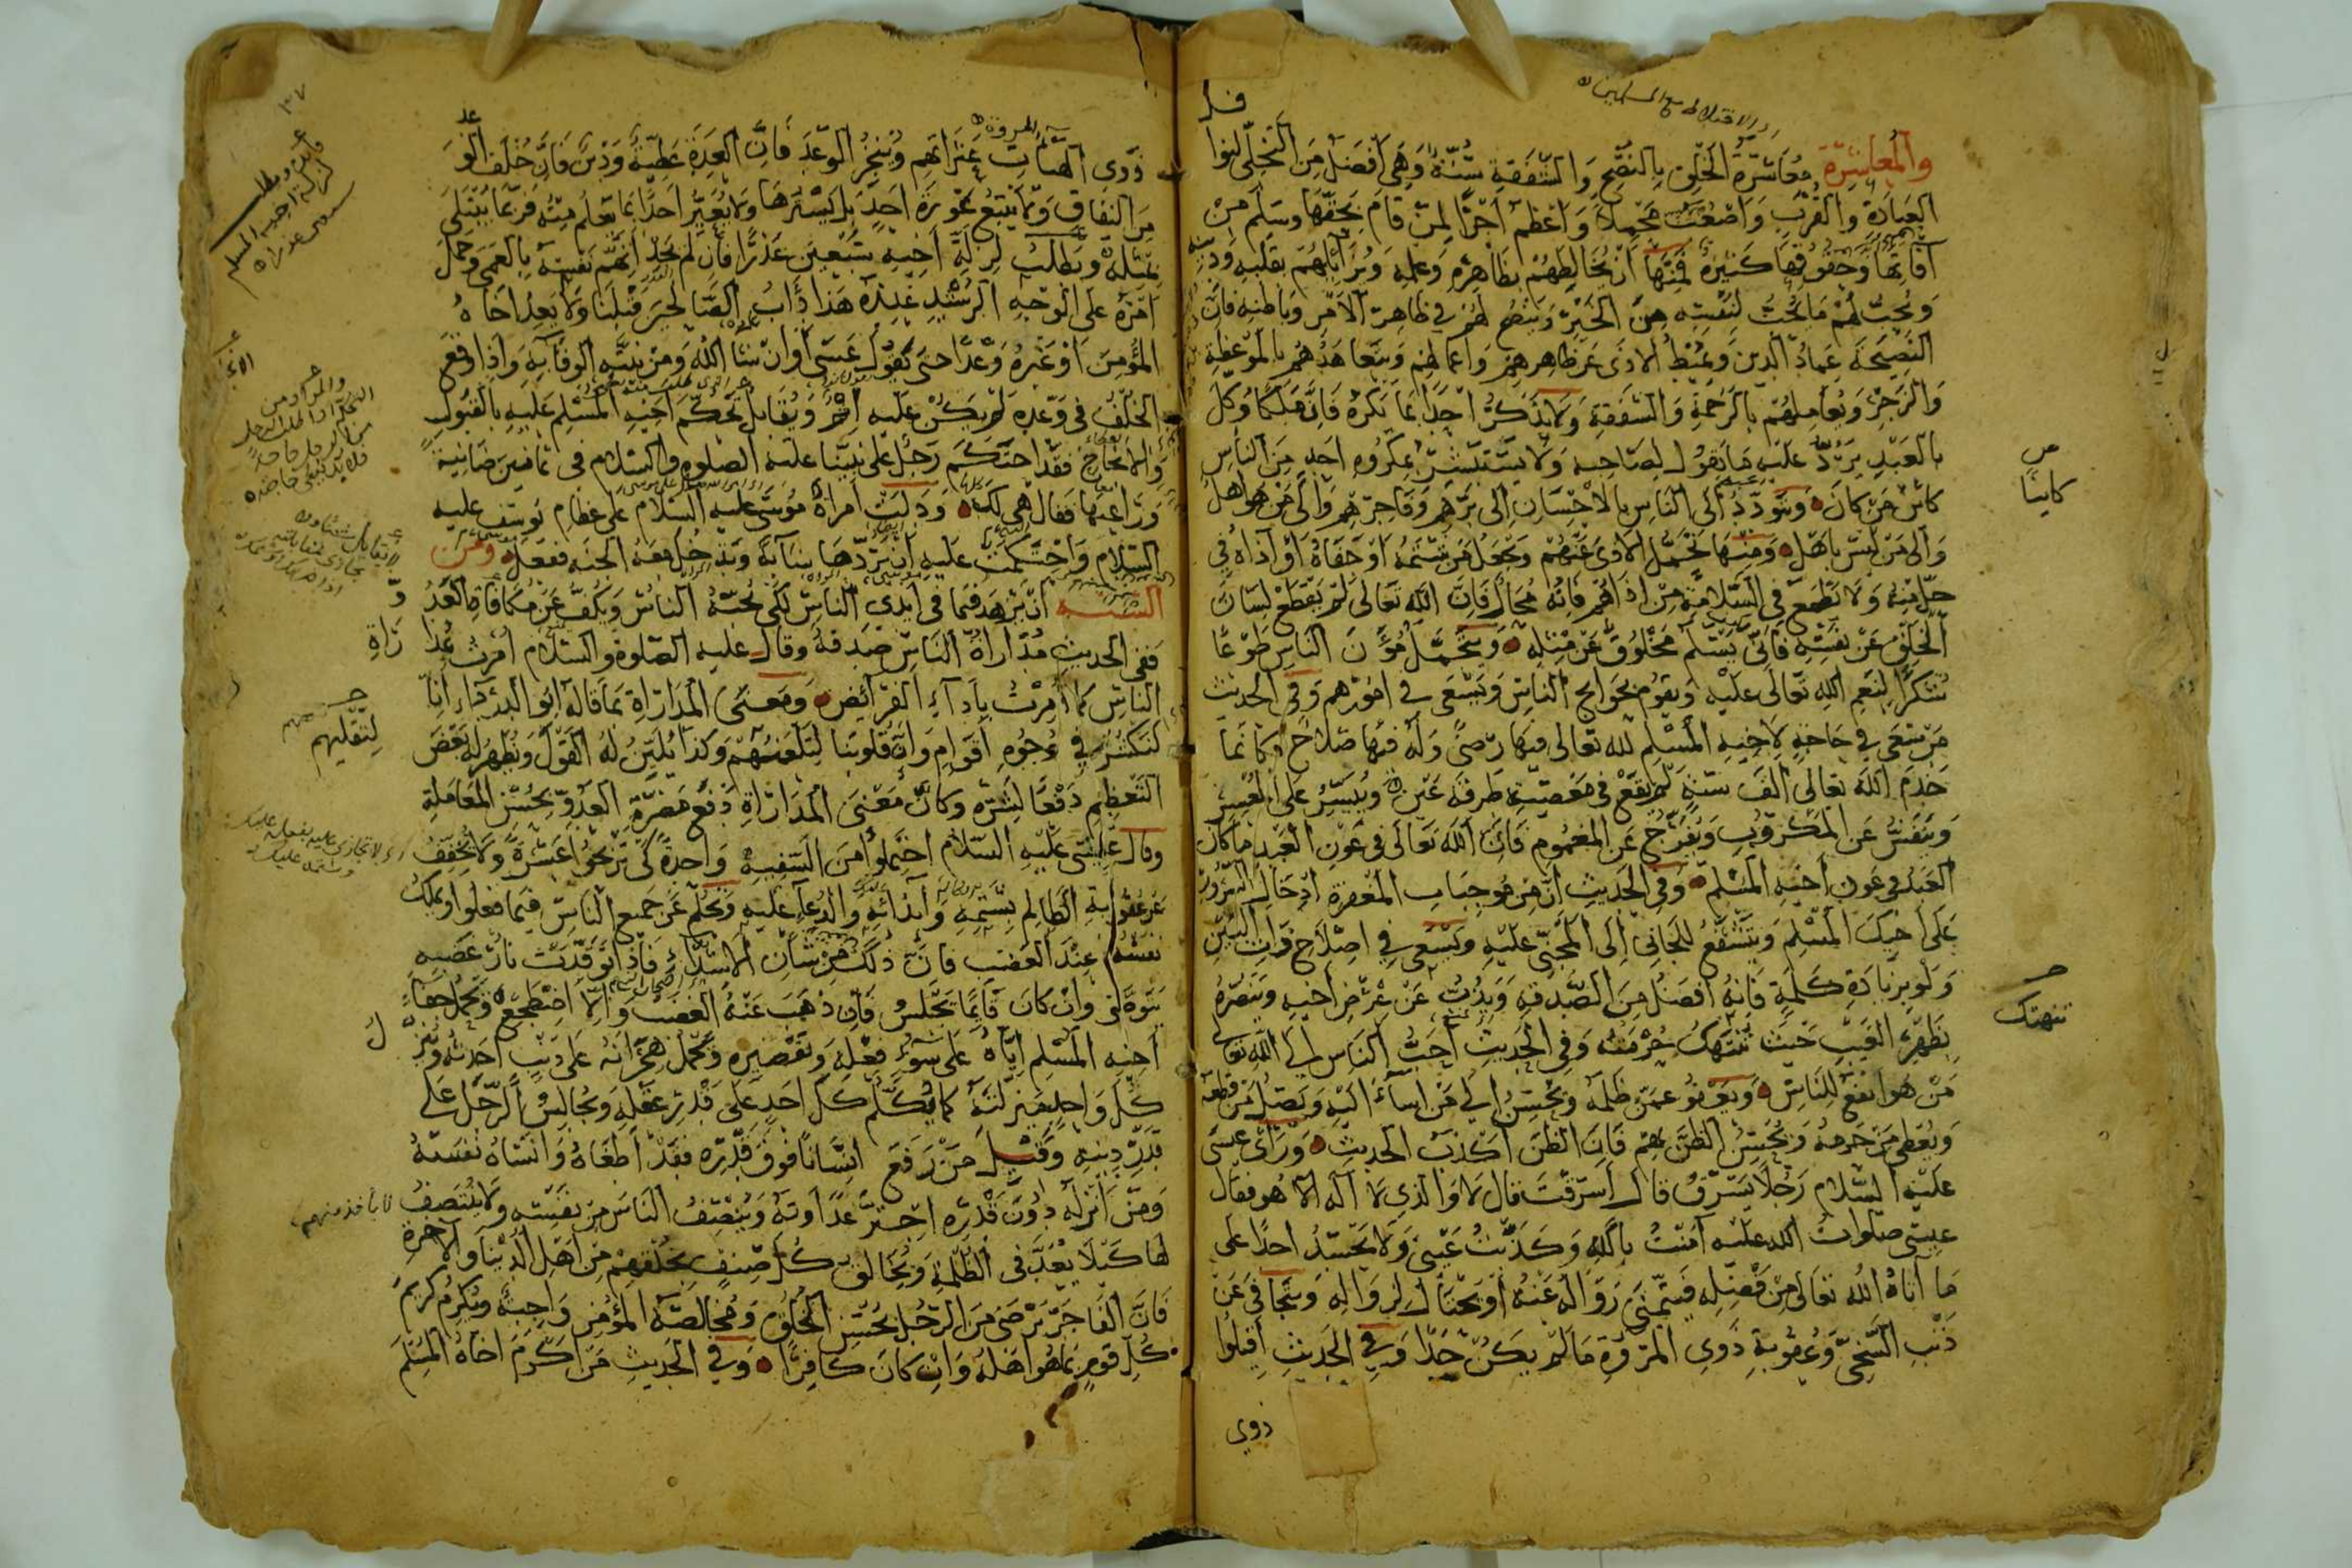 والمعاشرة معاشرة الخلق بالنصح والشفقة سنة وهي أفضل من التخلي لنوافل
العبادة والقرب واصعب محملا واعظم اجرا لمن قام بحقها وسلم من
آفاتها وحقوقها كثيرة فمنها ان يخالطهم بظاهره وعلمه ويزايلهم بقلبه ودينه
ويحب لهم ما يحب لنفسه من الخير وينصح لهم في ظاهر الامر وباطنه فان
النصيحة عماد الدين ويميط الاذى عن ظاهرهم واعمالهم ويتعاهدهم بالموعظة
والزجر ويعاملهم بالرحمة والشفقة ولا يذكر احدا بما يكره فان ملكا وكل
بالعبد يرد عليه ما يقول لصاحبه ولا يستبشر بمكروه احد من الناس
كائن من كان ويتودد الى الناس بالاحسان الى برهم وفاجرهم والى من هو اهل
والى من ليس باهل ومنها تحمل الاذى عنهم ويجعل من شتمه او جفاه او آذاه في
حل منه ولا يطمع في السلامة من اذاهم فانه محال فان الله تعالى لم يقطع لسان
الخلق عن نفسه فانى يسلم مخلوق عن مثله ويتحمل مؤن الناس طوعا
شكرا لنعم الله تعالى عليه ويقوم بحوايج الناس ويسعى في امورهم وفي الحديث
من سعى في حاجة لاخيه المسلم لله تعالى فيها رضى وله فيها صلاح فكانما
خدم الله تعالى الف سنة لم يقع في معصية طرفة عين وييسر على المعسر
وينفس عن المكروب ويفرج عن المغموم فان الله تعالى في عون العبد ما كان
العبد في عون اخيه المسلم وفي الحديث ان من موجبات المغفرة ادخال السرور
على اخيك المسلم ويتشفع للجاني الى المجني عليه ويسعى في اصلاح ذات البين
ولو بزيادة كلمة فانه افضل من الصدقة ويذب عن عرض اخيه وينصره
بظهر الغيب حيث تنتهك حرمته وفي الحديث احب الناس الى الله تعالى
من هو انفع للناس ويعفو عمن ظلمه ويحسن الى من اساء اليه ويصل من قطعه
ويعطي من حرمه ويحسن الظن بهم فان الظن اكذب الحديث ورأى عيسى
عليه السلام رجلا يسرق قال اسرقت قال لا والذي لا اله الا هو فقال
عيسى صلوات الله عليه آمنت بالله وكذبت عيني ولا يحسد احدا على
ما آتاه الله تعالى من فضله فيتمنى زواله عنه او يحتال لزواله ويتجافى عن
ذنب السخي وعقوبة ذوي المروة ما لم يكن حدا وفي الحديث اقيلوا
ذوي
كائنا
تنتهك
ذوى الهيآت عثراتهم وينجز الوعد فان العدة عطية ودين فان خلف الوعد
من النفاق ولا يتبع عورة احد بل يسترها ولا يعير احدا بما تعلم منه فربما يبتلى
بمثله ويطلب لزلة اخيه سبعين عذرا فان لم يجد اتهم نفسه بالعمى وحمل
امره على الوجه الرشيد عنده هذا دأب الصالحين قبلنا ولا يعد اخاه
المؤمن او غيره وعدا حتى يقول عسى او ان شاء الله ومن نيته الوفا به واذا وقع
الخلف في وعده لم يكن عليه اثم ويقابل تحكم اخيه المسلم عليه بالقبول
والانجاح فقد احتكم رجل على نبينا عليه الصلوة والسلام في ثمانين ضانية
وراعيها فقال هي لك ودلت امرأة موسى عليه السلام على عظام يوسف عليه
السلام واحتكمت عليه ان يردها شابة وتدخل معه الجنة ففعل ومن
السنة ان يزهد فيما في ايدي الناس لكي تحبه الناس ويكف عن مكافاة العدو
ففي الحديث مداراة الناس صدقة وقال عليه الصلوة والسلام امرت بمداراة
الناس كما امرت باداء الفرائض ومعنى المداراة ما قاله ابو الدرداء انا
لنكشر في وجوه اقوام وان قلوبنا لتلعنهم وكذا يلين له القول ويظهر له بعض
التعظيم دفعا لشره وكان معنى المداراة دفع مضرة العدو بحسن المعاملة
وقال عيسى عليه السلام احتملوا من السفيه واحدة كي تربحوا عشرة ولا يخفف
عن عقوبة الظالم بشتمه وايذائه والدعاء عليه ويحلم عن جميع الناس فيما فعلوا ويملك
نفسه عند الغضب فان ذلك من شان الاشداء فاذا توقدت نار غضبه
يتوضا وان كان قائما يجلس فان ذهب عنه الغضب والا اضطجع ويحمل جفاء
اخيه المسلم اياه على سوء فعله وتقصيره ويحمل هجرانه على ذنب احدثه وينزل
كل واحد منزلته كما يكلم كل احد على قدر عقله ويجالس الرجل على
قدر دينه وقيل من رفع انسانا فوق قدره فقد اطغاه وانساه نفسه
ومن انزله دون قدره اجتر عداوته وينتصف الناس من نفسه ولا ينتصف
لها كيلا يعد في الظلمة ويخالق كل صنف بخلقهم من اهل الدنيا والآخرة
فان الفاجر يرضى من الرجل بحسن الخلق ومخالصة المؤمن واجبة ويكرم كريم
كل قوم بما هو اهله وان كان كافرا وفي الحديث من اكرم اخاه المسلم
لتقليهم
لا يأخذ منهم